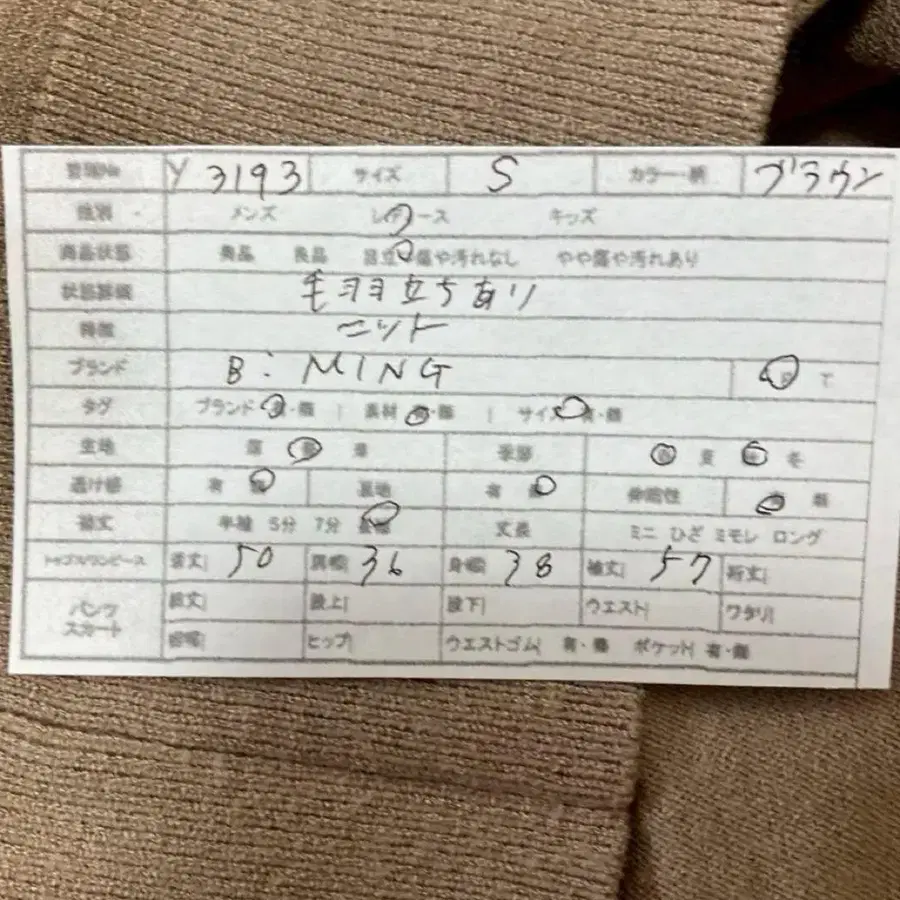 管理No Y 3193 サイズ S カラー・柄 ブラウン
性別 メンズ レディース キッズ
商品状態 美品 良品 目立つ傷や汚れなし やや傷や汚れあり
状態詳細 毛羽立ちあり
特徴 ニット
ブランド B:MING
タグ ブランド 有・無 | 素材 有・無 | サイズ 有・無
生地 薄 普 厚 季節 春 夏 秋 冬
透け感 有 無 裏地 有 無 伸縮性 有 無
袖丈 半袖 5分 7分 長袖 丈長 ミニ ひざ ミモレ ロング
トップス/ワンピース 着丈 50 肩幅 36 身幅 38 袖丈 57 裄丈
パンツ スカート 総丈 股上 股下 ウエスト ワタリ
裾幅 ヒップ ウエストゴム 有・無 ポケット 有・無